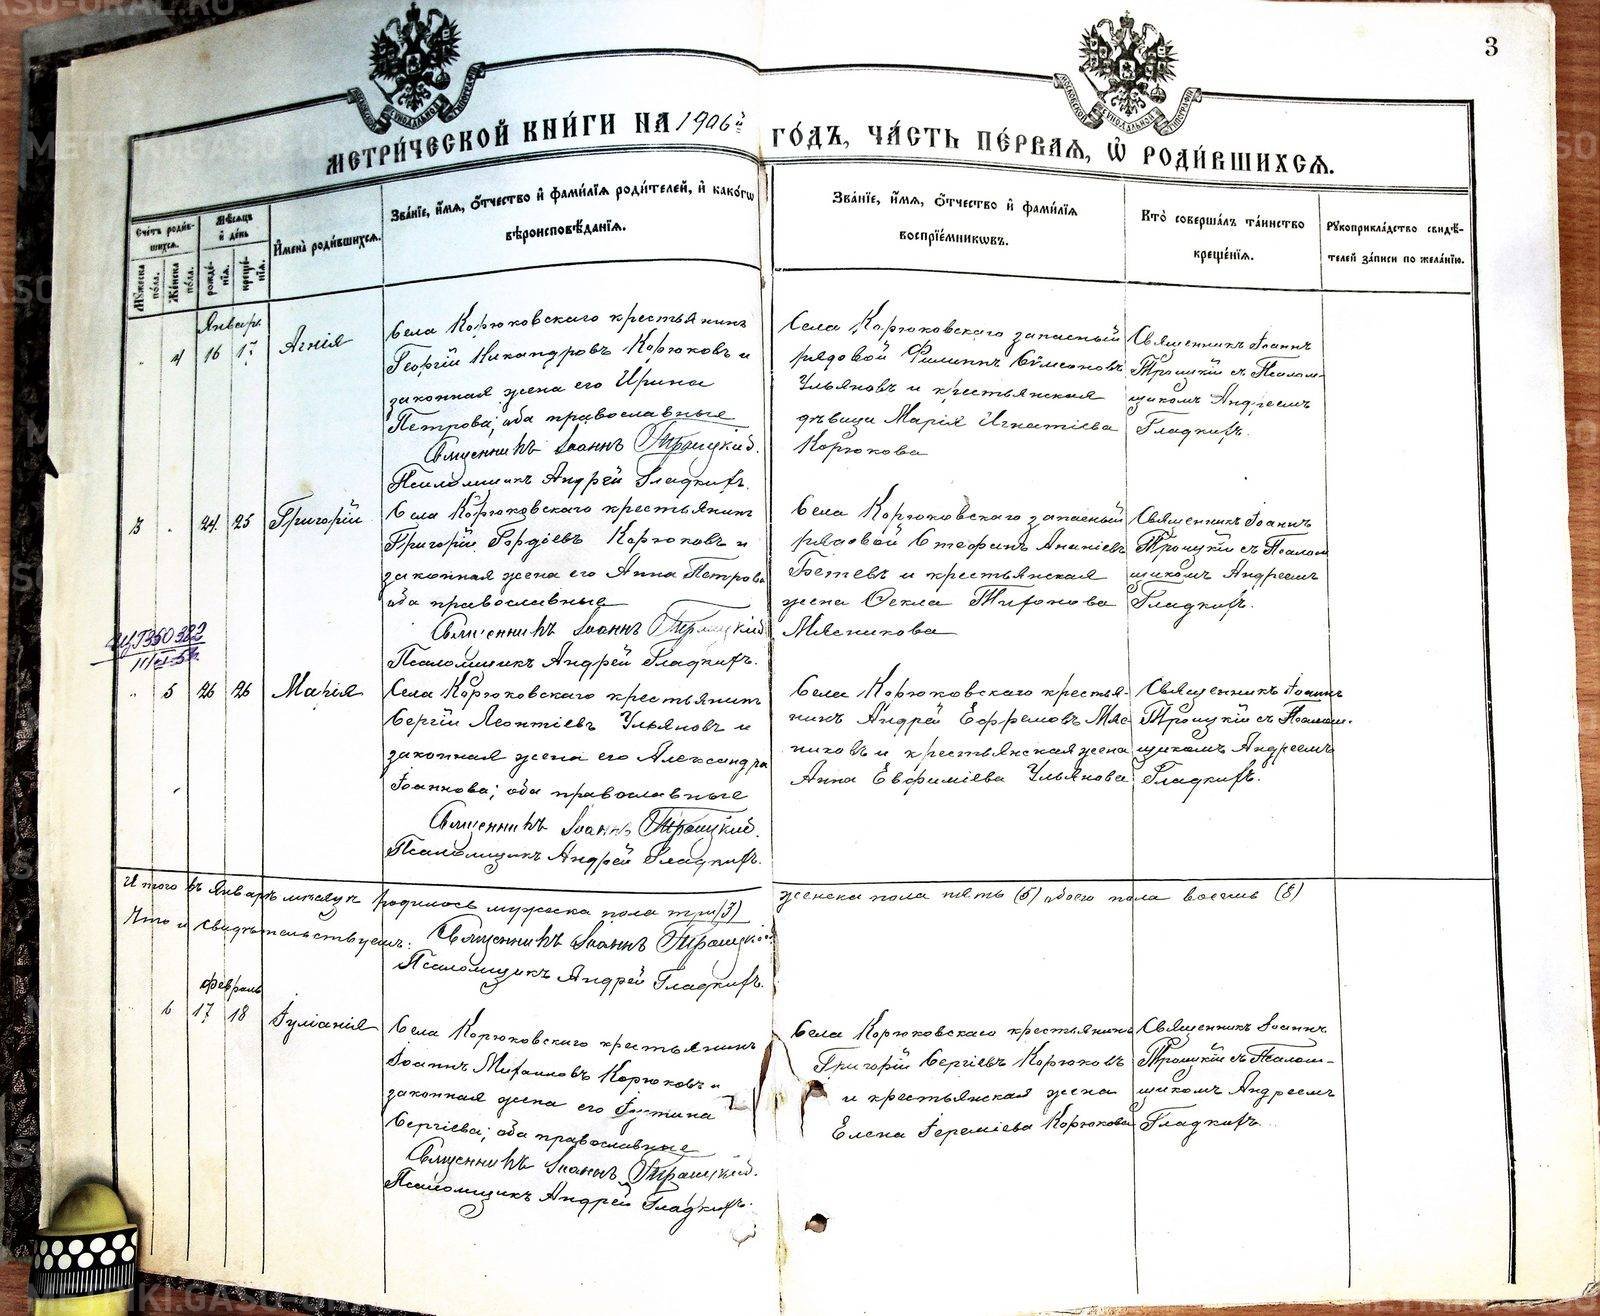 3
МЕТРИ́ЧЕСКОЙ КНИ́ГИ НА 1906й ГО́ДЪ, ЧА́СТЬ ПЕ́РВАЯ, Ѡ РОДИ́ВШИХСЯ.
Сче́тъ роди́вшихся.
Му́жеска по́ла.
Же́нска по́ла.
Мѣ́сяцъ и҆ де́нь
рожде́нїя.
креще́нїя.
И҆мена̀ роди́вшихся.
Зва́нїе, и҆́мя, ѻ҆́тчество и҆ фами́лїя роди́телей, и҆ како́гѡ
вѣроисповѣ́данїя.
Зва́нїе, и҆́мя, ѻ҆́тчество и҆ фами́лїя
воспрїе́мникѡвъ.
Кто̀ соверша́лъ та́инство
креще́нїя.
Рꙋкоприкла́дство свидѣ́-
телей за́писи по жела́нїю.
Январь
4 16 17 Агнія
Села Корюковскаго крестьянинъ
Георгій Никандровъ Корюковъ и
законная жена его Ирина
Петрова; оба православные
Священникъ Іоаннъ Троицкій.
Псаломщикъ Андрей Гладкихъ.
Села Корюковскаго запасный
рядовой Филиппъ Сѵмеоновъ
Ульяновъ и крестьянская
дѣвица Марія Игнатіева
Корюкова
Священникъ Іоаннъ
Троицкій съ Псалом-
щикомъ Андреемъ
Гладкихъ.
3 24 25 Григорій
Села Корюковскаго крестьянинъ
Григорій Гордіевъ Корюковъ и
законная жена его Анна Петрова
оба православные
Священникъ Іоаннъ Троицкій
Псаломщикъ Андрей Гладкихъ.
Села Корюковскаго запасный
рядовой Стефанъ Ананіевъ
Бетевъ и крестьянская
жена Ѳекла Тихонова
Мясникова
Священникъ Іоаннъ
Троицкій съ Псалом
щикомъ Андреемъ
Гладкихъ.
350382
5 26 26 Марія
Села Корюковскаго крестьянинъ
Сергій Леонтіевъ Ульяновъ и
законная жена его Александра
Іоаннова; оба православные
Священникъ Іоаннъ Троицкій.
Псаломщикъ Андрей Гладкихъ.
Села Корюковскаго крестья-
нинъ Андрей Ефремовъ Мяс
никовъ и крестьянская жена
Анна Евфиміева Ульянова
Священникъ Іоаннъ
Троицкій съ Псалом-
щикомъ Андреемъ
Гладкихъ.
Итого въ Январѣ мѣсяцѣ родилось мужеска пола три (3) женска пола пять (5) обоего пола восемь (8)
Что и свидѣтельствуемъ: Священникъ Іоаннъ Троицкій
Псаломщикъ Андрей Гладкихъ.
Февраль
6 17 18 Іуліанія
Села Корюковскаго крестьянинъ
Іоаннъ Михаиловъ Корюковъ и
законная жена его Іустина
Сергіева; оба православные
Священникъ Іоаннъ Троицкій.
Псаломщикъ Андрей Гладкихъ.
Села Корюковскаго крестьянинъ
Григорій Сергіевъ Корюковъ
и крестьянская жена
Елена Іереміева Корюкова
Священникъ Іоаннъ
Троицкій съ Псалом-
щикомъ Андреемъ
Гладкихъ.